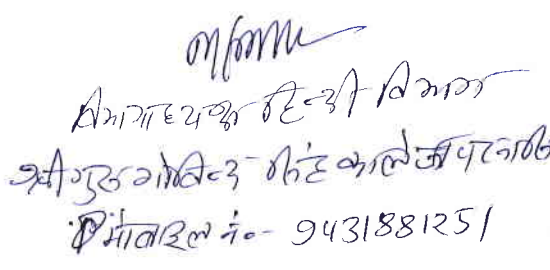 विभागाध्यक्ष हिन्दी विभाग
श्री गुरू गोबिन्द सिंह कालेज पटना सिटी
मोबाइल नं०- 9431881251